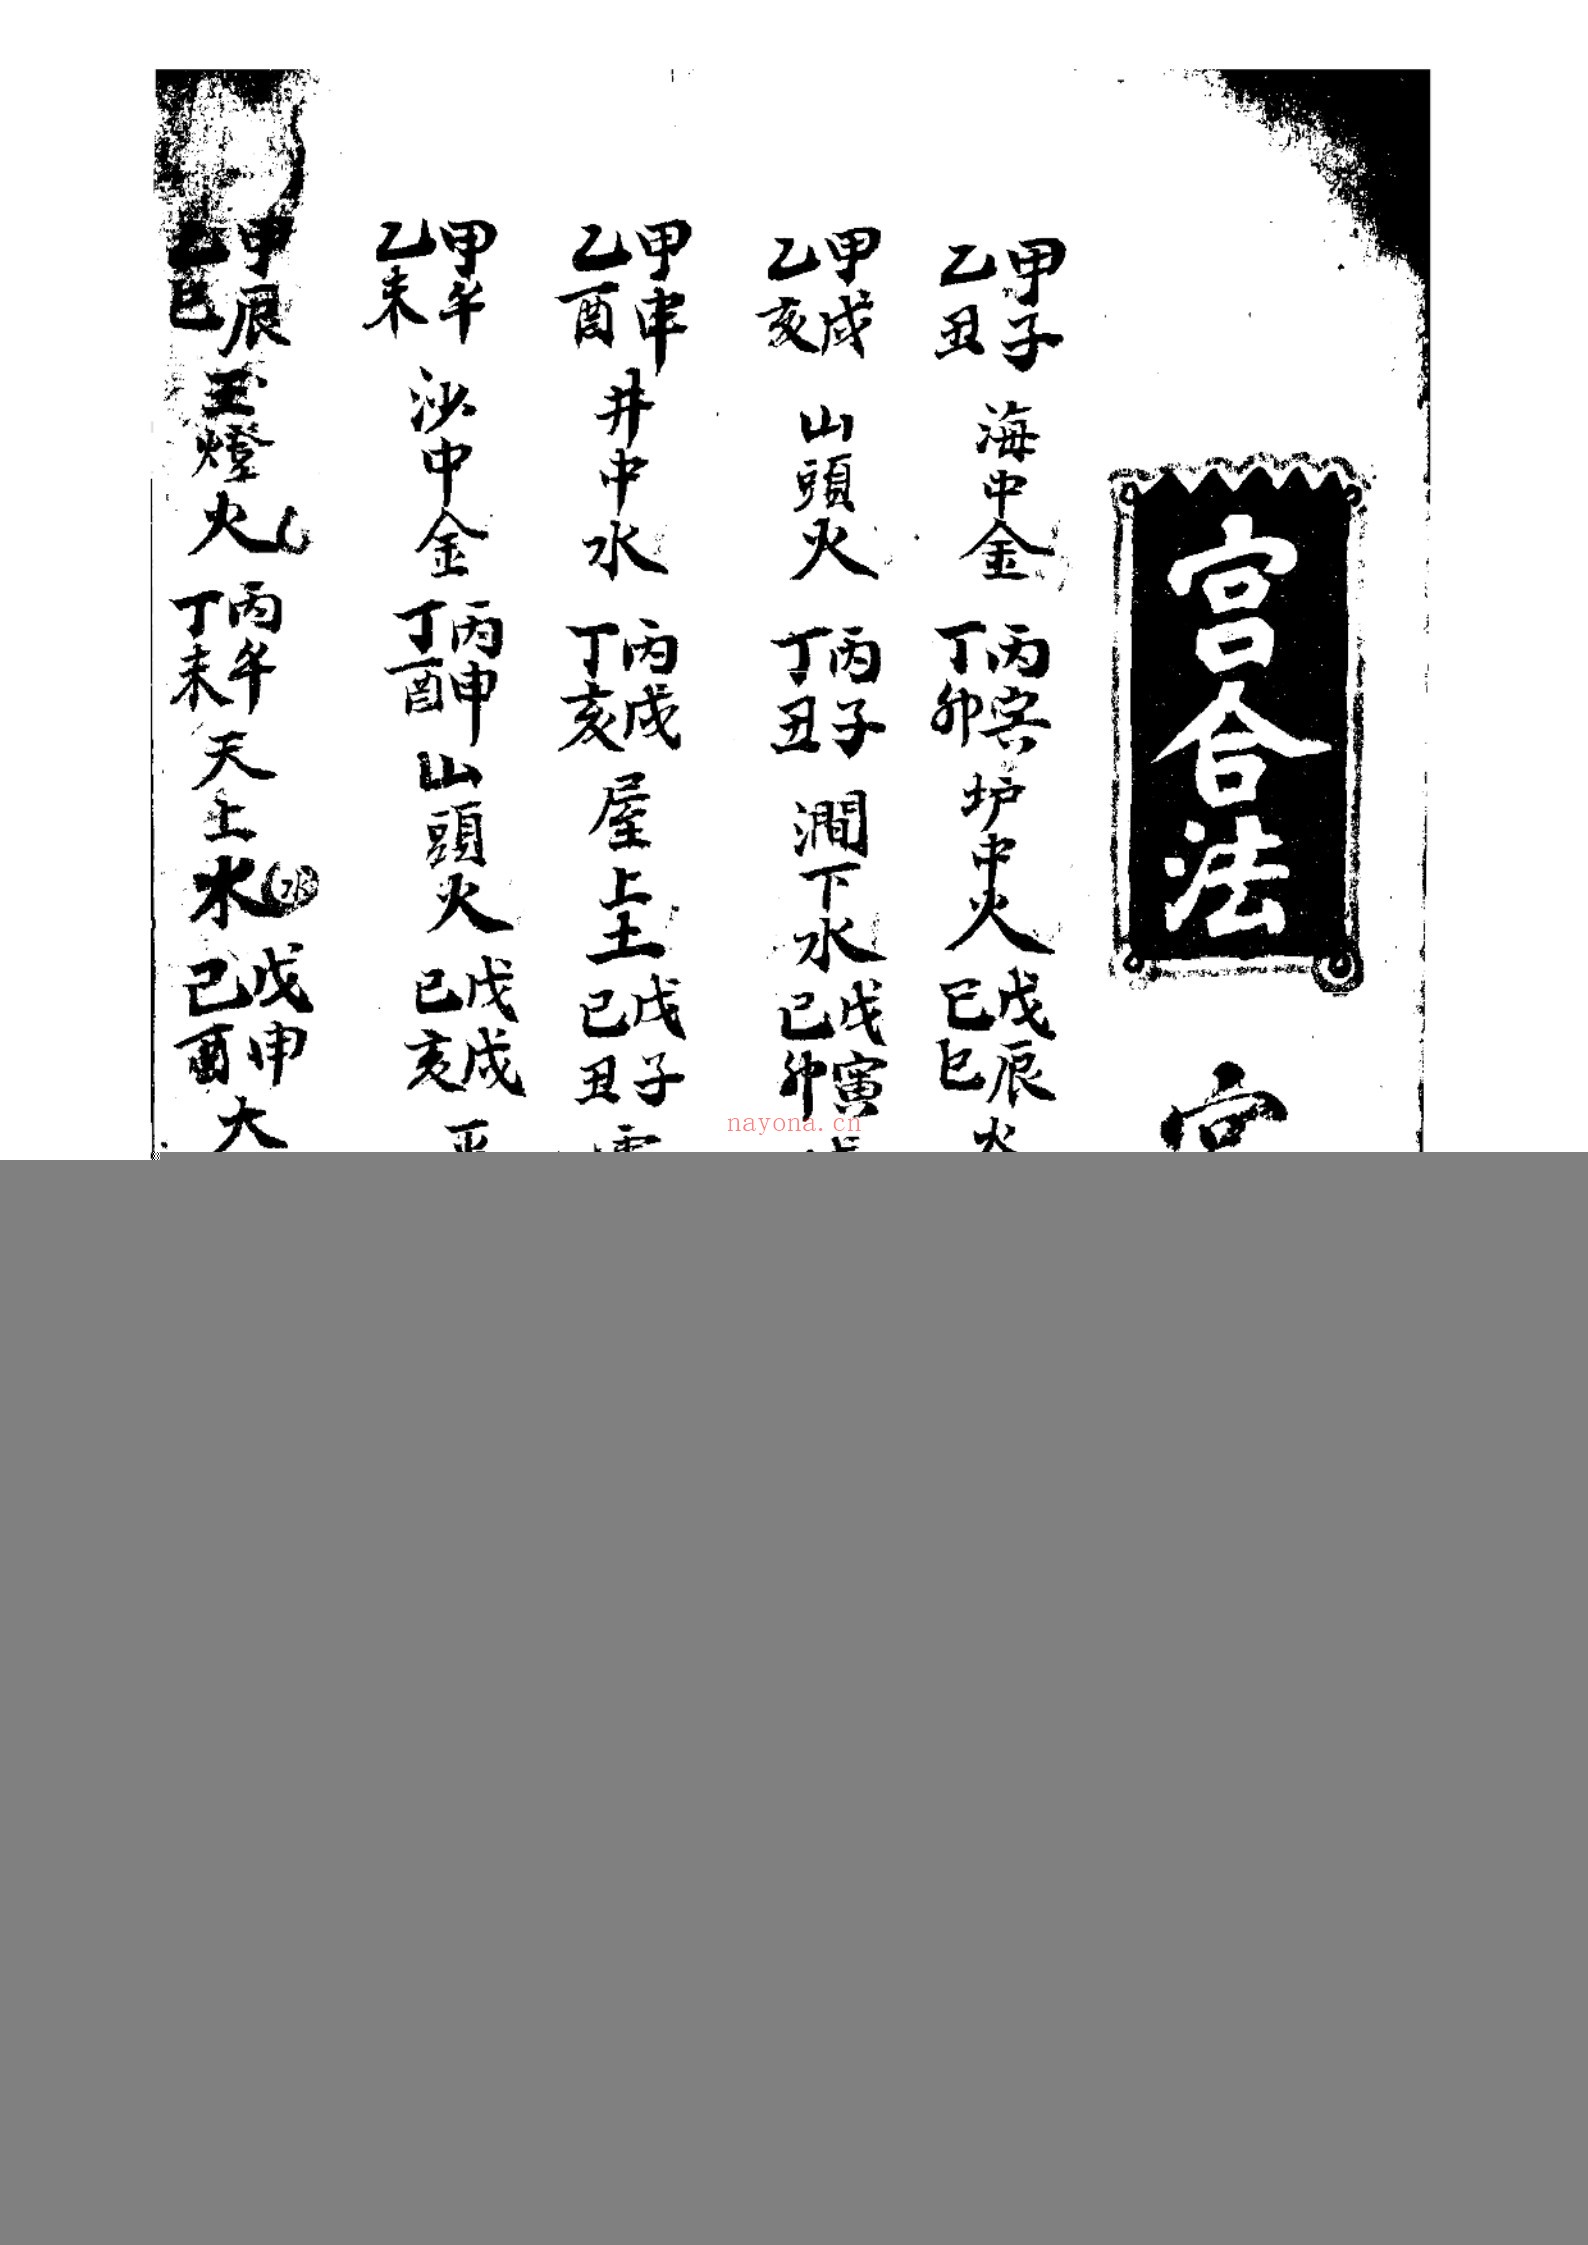 宫合法
甲子乙丑海中金丙寅丁卯炉中火戊辰己巳
甲戌乙亥山頭火丙子丁丑澗下水戊寅己卯
甲申乙酉井中水丙戌丁亥屋上土戊子己丑
甲午乙未沙中金丙申丁酉山頭火戊戌己亥平
甲辰乙巳玉燈火丙午丁未天上水戊申己酉大
nayona.cn